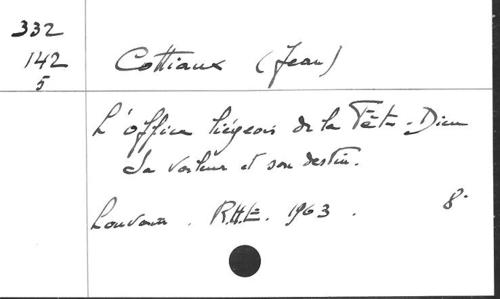 332
142
5
Cottiaux (Jean)
L'office liégeois de la Fête-Dieu
Sa valeur et son destin.
Louvain. R.H.E. 1963. 8°